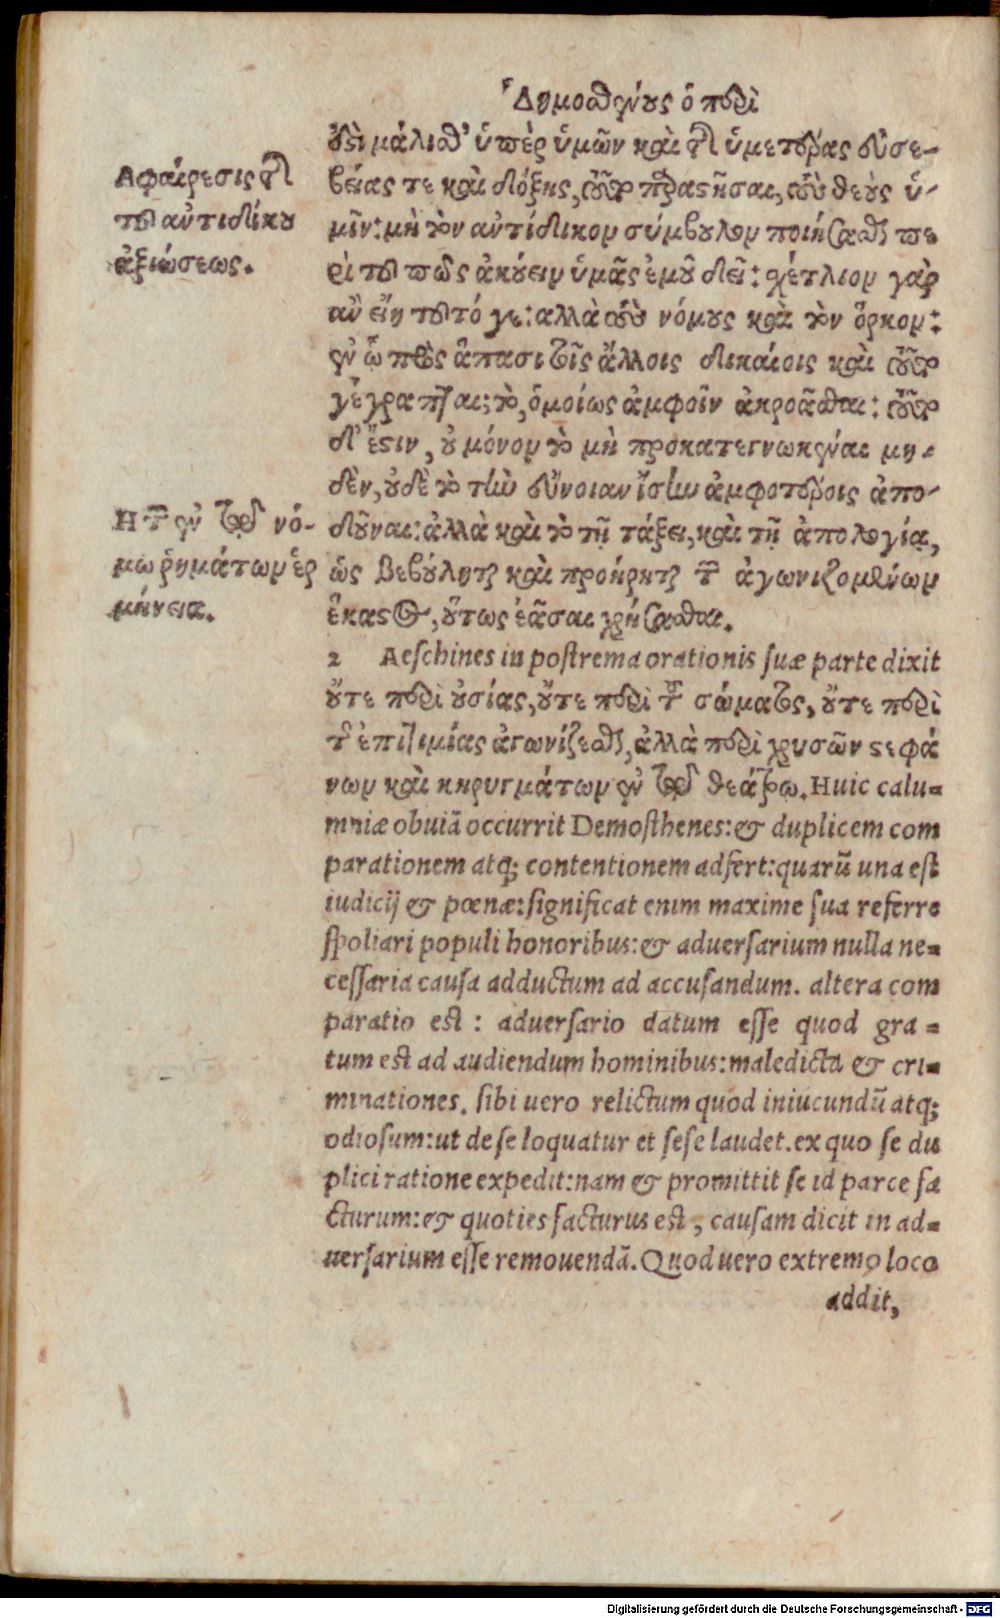 Δημοσθένους ὁ περὶ
ἐστὶ μάλισθ' ὑπὲρ ὑμῶν καὶ τῆς ὑμετέρας εὐσε-
βείας τε καὶ δόξης, τοῦτο παραστῆσαι, τοὺς θεοὺς ὑ-
μῖν: μὴ τὸν ἀντίδικον σύμβουλον ποιήσασθαι πε
ρὶ τοῦ πῶς ἀκούειν ὑμᾶς ἐμοῦ δεῖ: σχέτλιον γὰρ
ἂν εἴη τοῦτό γε: αλλὰ τοὺς νόμους καὶ τὸν ὅρκον:
ἐν ᾧ πρὸς ἅπασι τοῖς ἄλλοις δικαίοις καὶ τοῦτο
γέγραπται; τὸ, ὁμοίως ἀμφοῖν ἀκροᾶσθαι: τοῦτο
δ' ἔστιν, οὐ μόνον τὸ μὴ προκατεγνωκέναι μη-
δὲν, οὐδὲ τὸ τὴν εὔνοιαν ἴσην ἀμφοτέροις ἀπο-
δοῦναι: ἀλλὰ καὶ τὸ τῇ τάξει, καὶ τῇ ἀπολογίᾳ,
ὡς βεβούληται καὶ προῄρηται τῶν ἀγωνιζομένων
ἕκαστος, οὕτως ἐᾶσαι χρήσασθαι.
Αφαίρεσις τῆς
τοῦ αὐτιδίκου
ἀξιώσεως.
Η τῶν ἐν τῷ νό-
μω ῥημάτων ἑρ
μήνεια.
2 Aeschines in postrema orationis suæ parte dixit
οὔτε περὶ οὐσίας, οὔτε περὶ τοῦ σώματος, οὔτε περὶ
τῆς ἐπιτιμίας ἀγωνίζεσθαι, ἀλλὰ περὶ χρυσῶν στεφά
νων καὶ κηρυγμάτων ἐν τῷ θεάτρῳ. Huic calu-
mniæ obuiā occurrit Demosthenes: & duplicem com
parationem atq; contentionem adfert: quarū una est
iudicij & pœnæ: significat enim maxime sua referre
spoliari populi honoribus: & aduersarium nulla ne-
cessaria causa adductum ad accusandum. altera com
paratio est : aduersario datum esse quod gra-
tum est ad audiendum hominibus: maledicta & cri-
minationes. sibi uero relictum quod iniucundū atq;
odiosum: ut de se loquatur et sese laudet. ex quo se du
plici ratione expedit: nam & promittit se id parce fa
cturum: & quoties facturus est, causam dicit in ad-
uersarium esse remouendā. Quod uero extremo loco
addit,
Digitalisierung gefördert durch die Deutsche Forschungsgemeinschaft - DFG